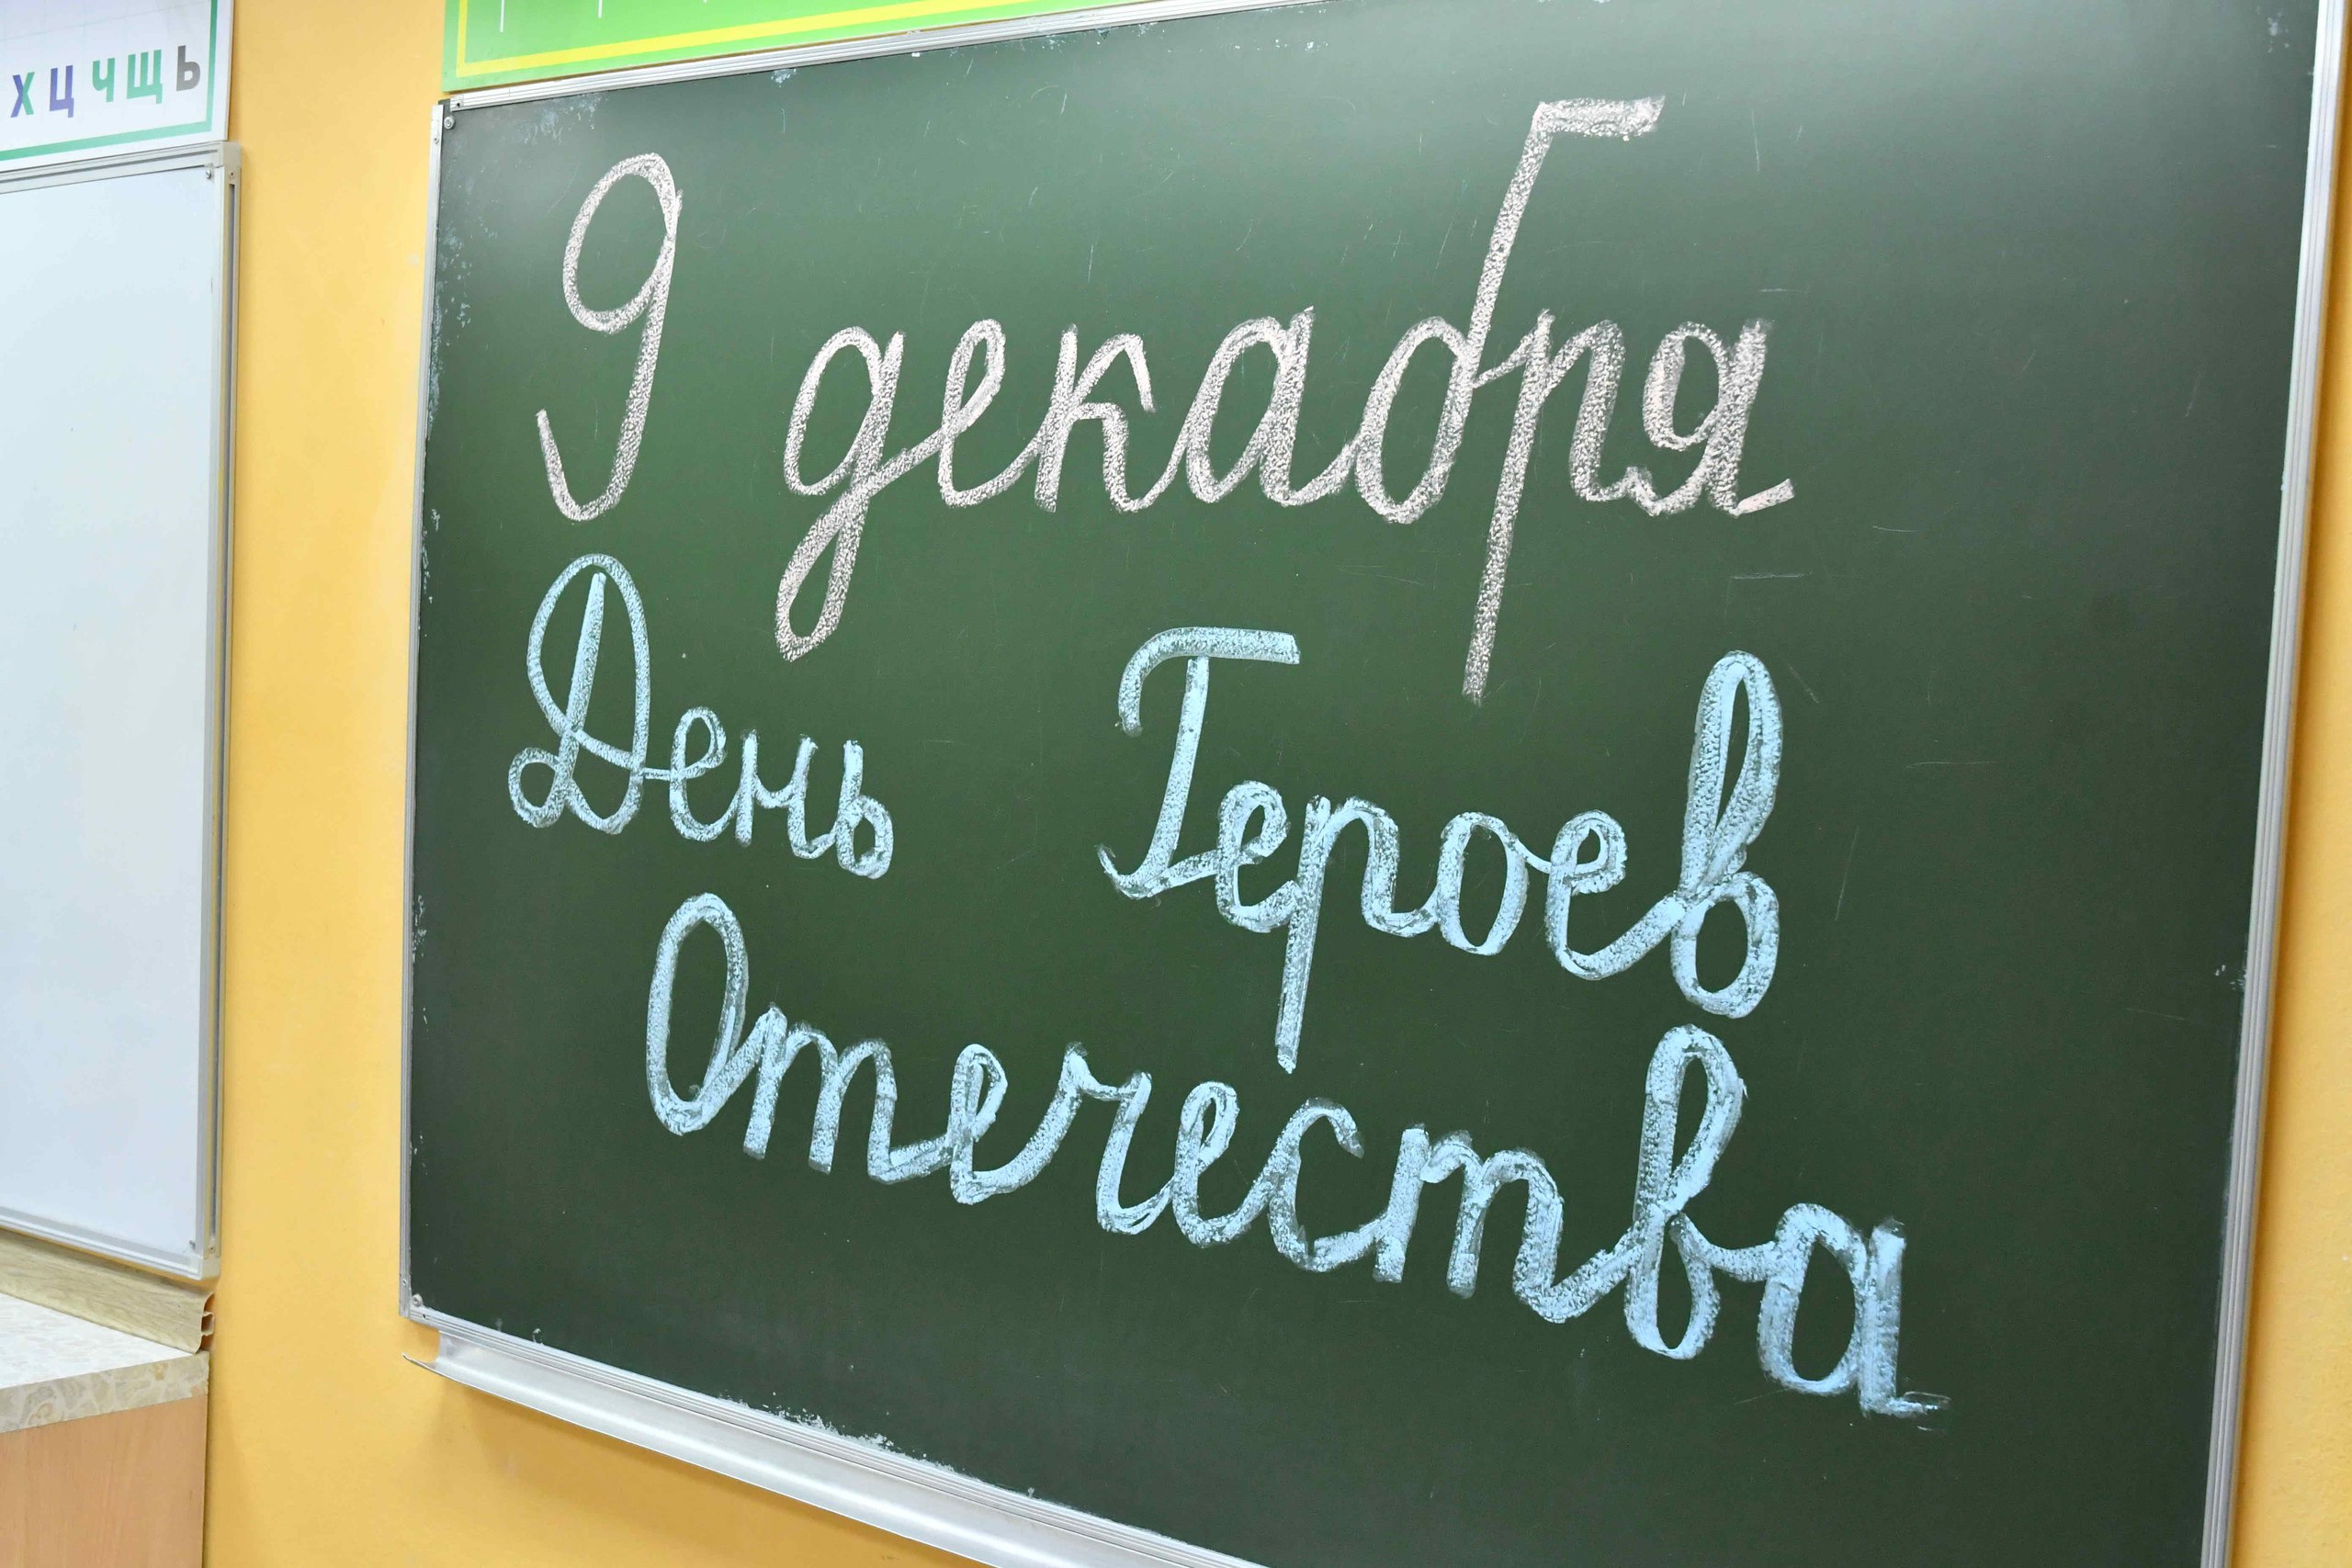 Х Ц Ч Щ Ь
9 декабря
День Героев
Отечества